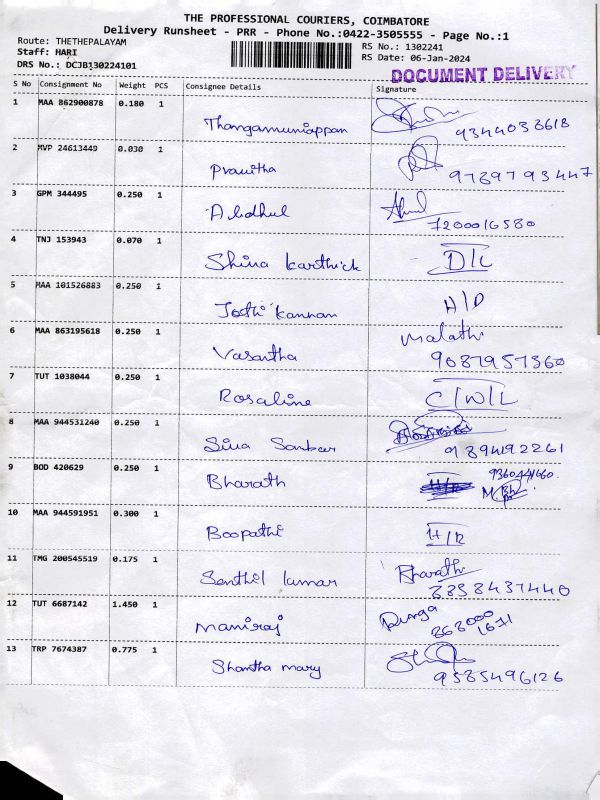 THE PROFESSIONAL COURIERS, COIMBATORE
Delivery Runsheet - PRR - Phone No.:0422-3505555 - Page No.:1
Route: THETHEPALAYAM
Staff: HARI
DRS No.: DCJB130224101
RS No.: 1302241
RS Date: 06-Jan-2024
DOCUMENT DELIVERY
S No Consignment No Weight PCS Consignee Details Signature
1 MAA 862900878 0.180 1 Thangamuniappan 9344038618
2 MVP 24613449 0.030 1 Pranitha 9789793447
3 GPM 344495 0.250 1 Abdhul 7200016580
4 TNJ 153943 0.070 1 Shiva karthick D/L
5 MAA 101526883 0.250 1 Jothi kannan H/D
6 MAA 863195618 0.250 1 Vasantha Malathi
9087957360
7 TUT 1038044 0.250 1 Rosaline C/W/L
8 MAA 944531240 0.250 1 Siva Sankar 9894192261
9 BOD 420629 0.250 1 Bharath
10 MAA 944591951 0.300 1 Boopathi H/R
11 TMG 200545519 0.175 1 Senthil kumar Bharathi
8838437440
12 TUT 6687142 1.450 1 Maniraj Durga
13 TRP 7674387 0.775 1 Shantha mary 9585496126